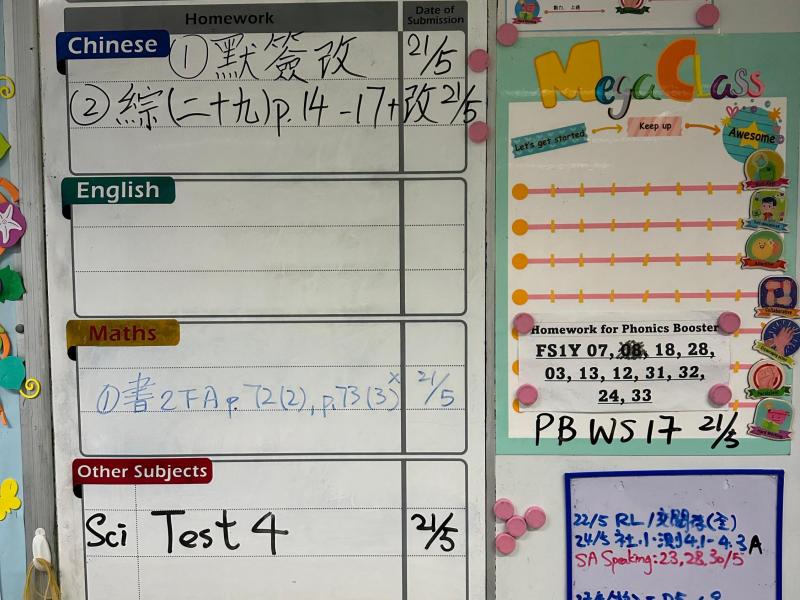 Homework
Date of Submission
Chinese
① 默簽改 21/5
② 綜(二十九)p.14-17+改 21/5
English
Maths
① 書2下A p.72(2), p.73(3)x 21/5
Other Subjects
Sci Test 4 21/5
Mega Class
Let's get started
Keep up
Awesome
Homework for Phonics Booster
FS1Y 07, 08, 18, 28,
03, 13, 12, 31, 32,
24, 33
PB WS 17 21/5
22/5 RL /
24/5 社小測4.1-4.3A
SA Speaking: 23,28,30/5